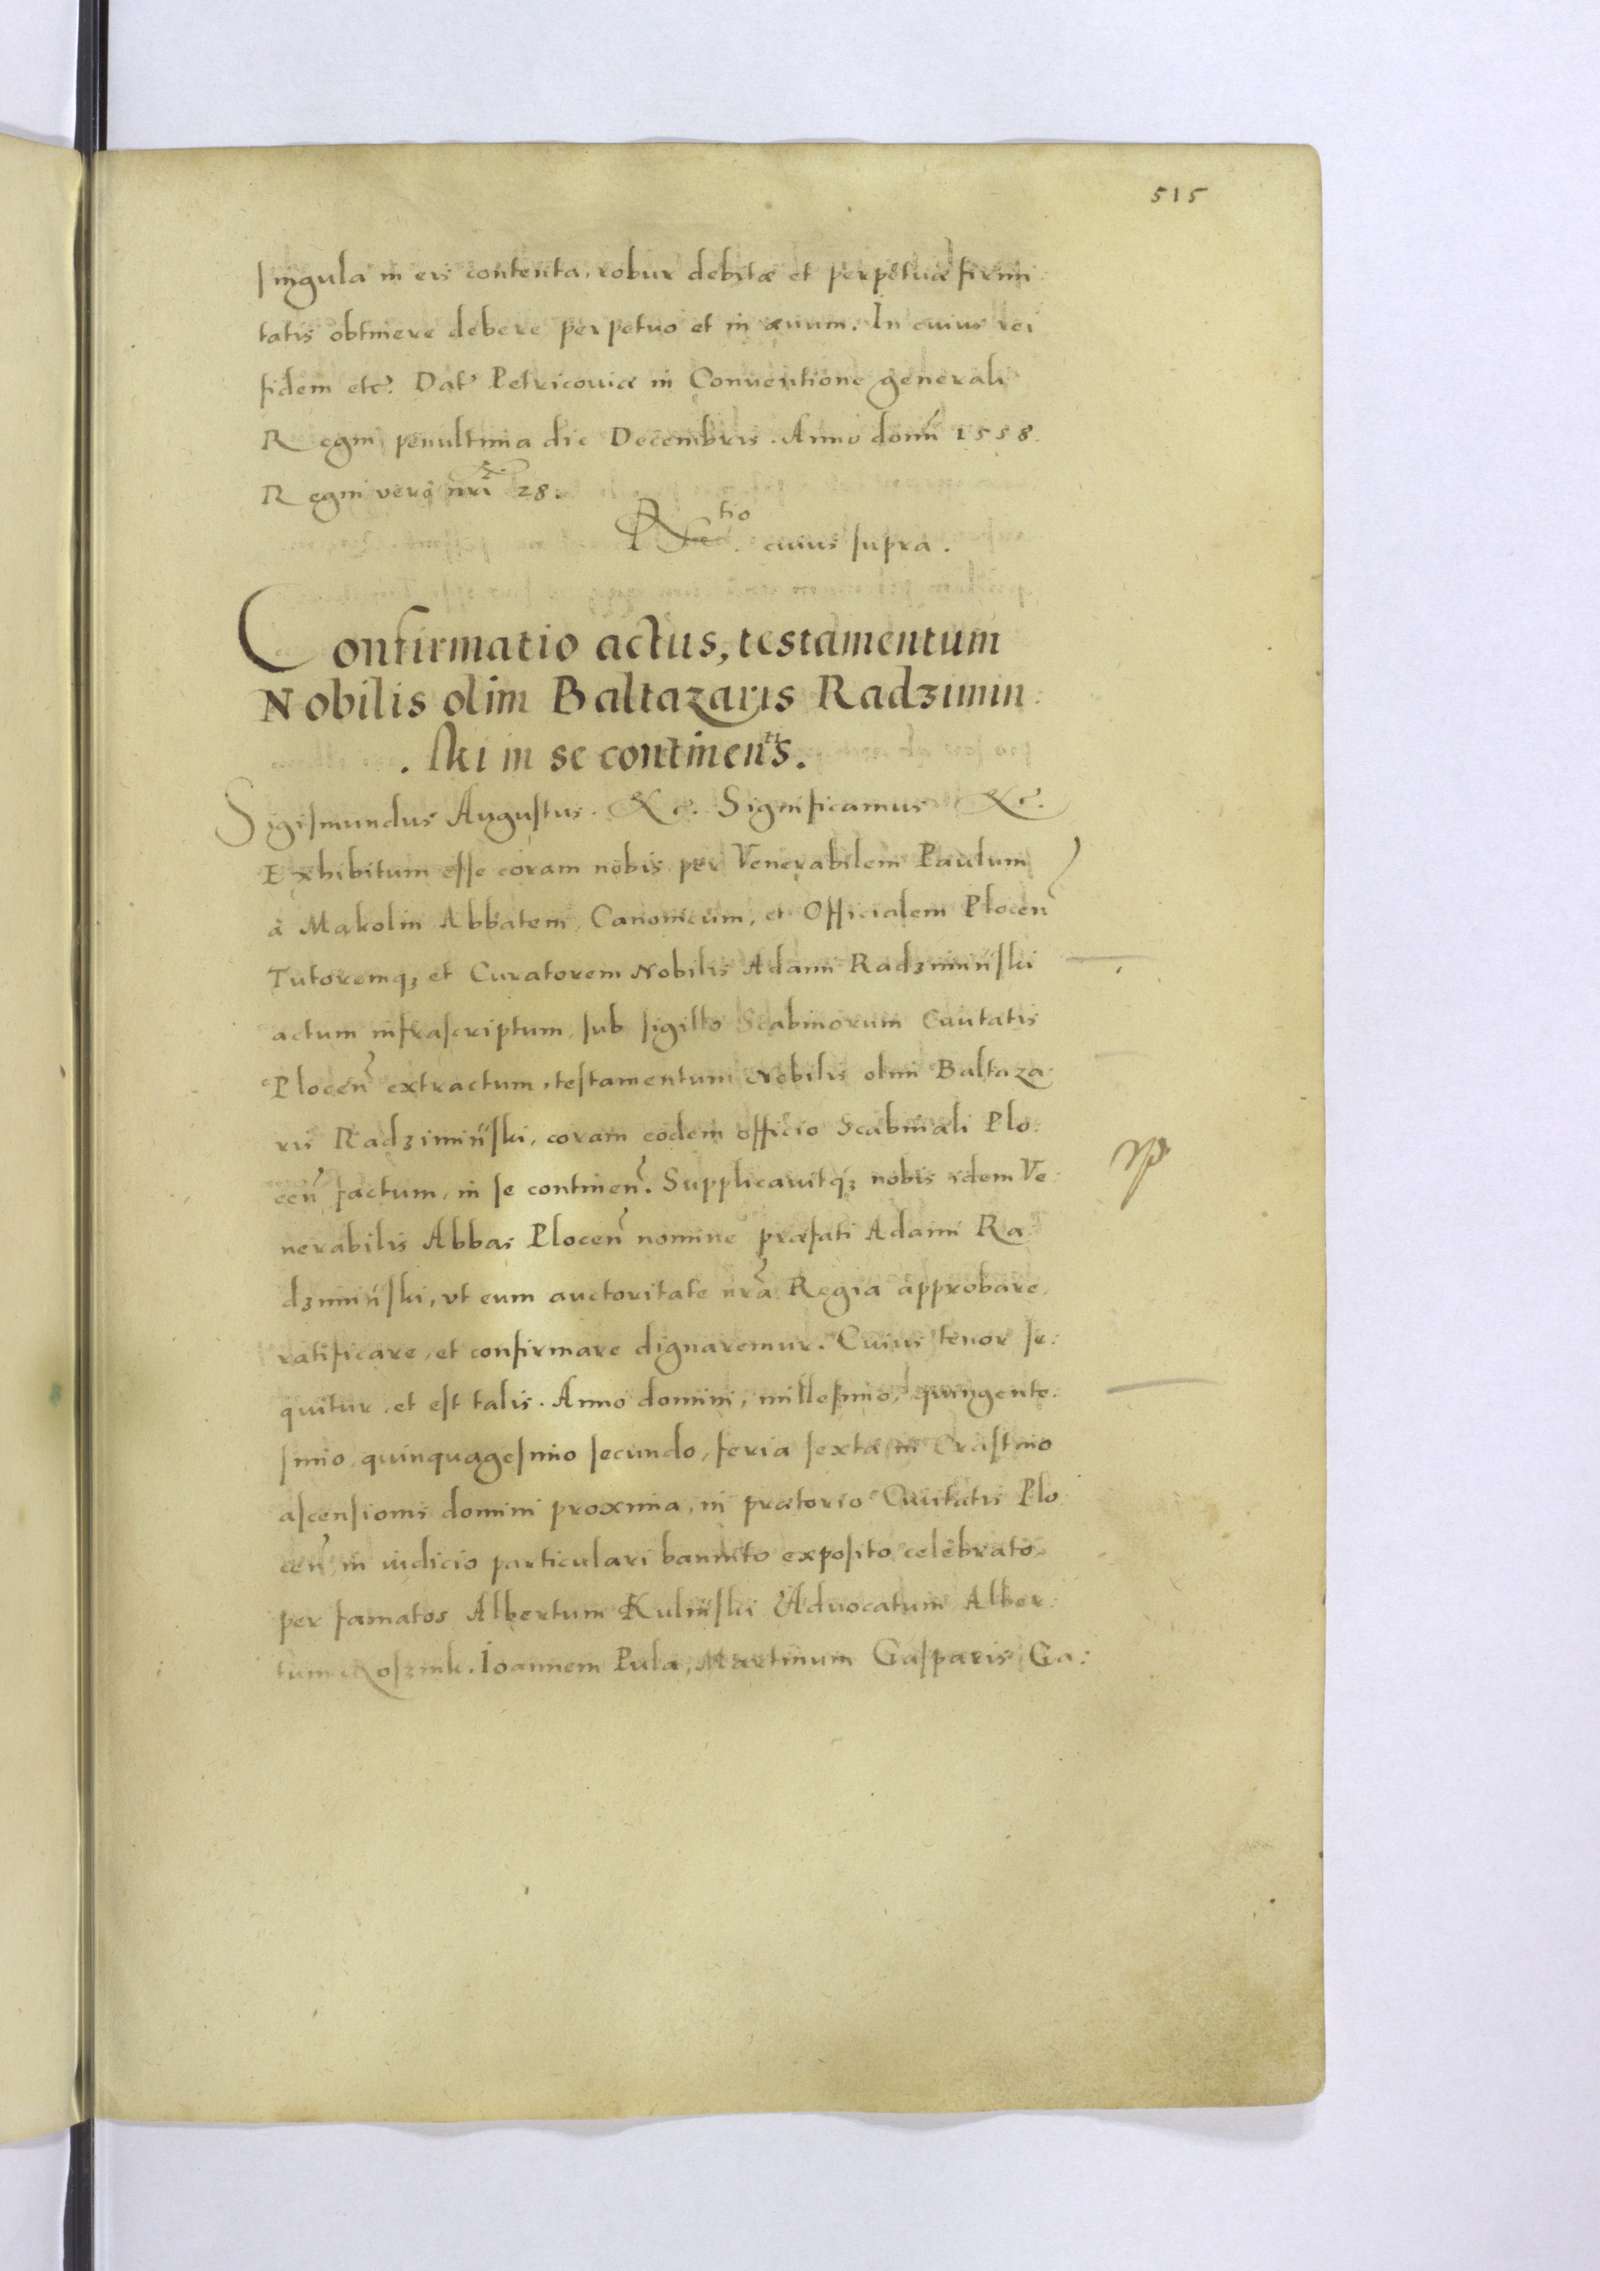 515
singula in eis contenta, robur debitæ et perpetuæ firmi:
tatis obtinere debere perpetuo et in æuum. In cuius rei
fidem etc. Dat Petricouiæ in Conuentione generali
Regni penultima die Decembris. Anno domi 1558.
Regni vero nri 28.
Rtio cuius supra.
Confirmatio actus, testamentum
Nobilis olim Baltazaris Radzimin:
ski in se continentis.
Sigismundus Augustus. &c. Significamus &c.
Exhibitum esse coram nobis per Venerabilem Paulum
à Makolin Abbatem, Canonicum, et Officialem Plocen
Tutoremq3 et Curatorem Nobilis Adami Radziminski
actum infrascriptum, sub sigillo Scabinorum Ciuitatis
Plocen extractum, testamentum Nobilis olim Baltaza
ris Radziminski, coram eodem officio Scabinali Plo:
cen factum, in se continen. Supplicauitq3 nobis idem Ve:
nerabilis Abbas Plocen nomine præfati Adami Ra
dziminski, vt eum auctoritate nra Regia approbare,
ratificare, et confirmare dignaremur. Cuius tenor se:
quitur, et est talis. Anno domini, millesimo, quingente:
simo, quinquagesimo secundo, feria sexta in Crastino
ascensionis domini proxima, in prætorio Ciuitatis Plo
cen in iudicio particulari bannito exposito celebrato,
per famatos Albertum Kulinski Aduocatum Alber:
tum Ioannem Pula, Martinum Gasparis, Ga: